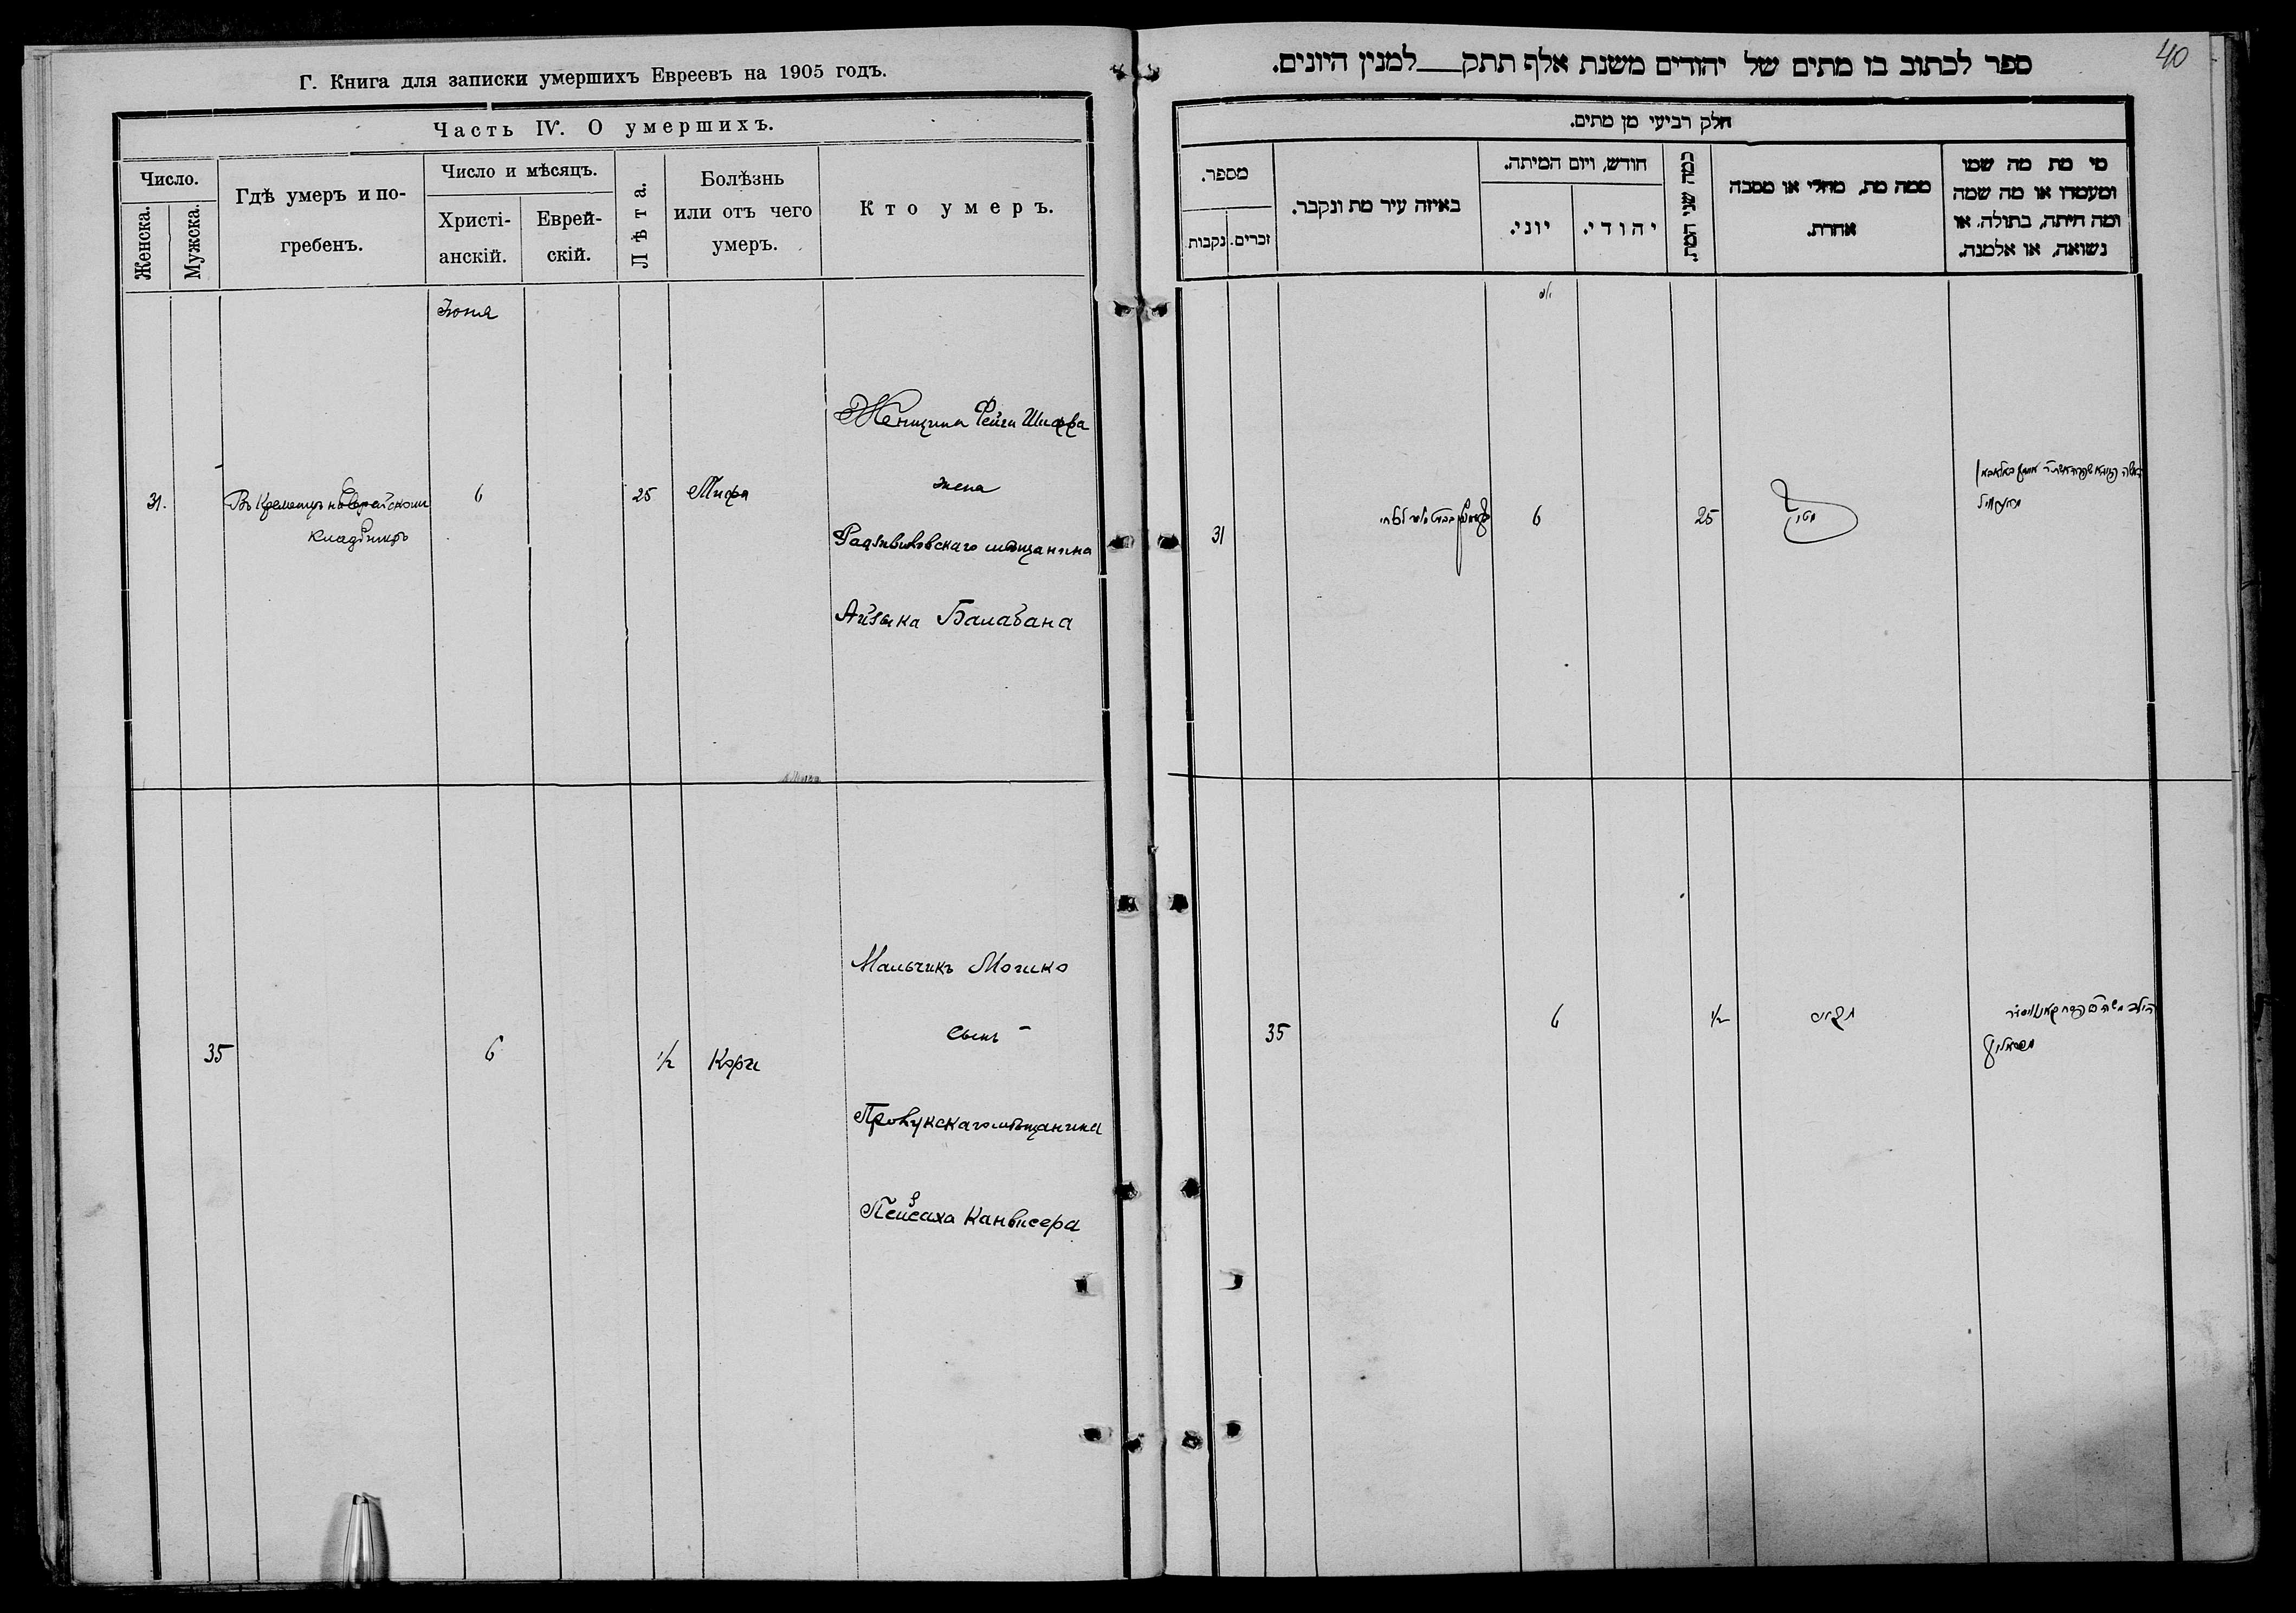 Г. Книга для записки умершихъ Евреевъ на 1905 годъ.
Часть IV. О умершихъ.
Число.
Женска.
Мужска.
Гдѣ умеръ и по-
гребенъ.
Число и мѣсяцъ.
Христі-
анскій.
Еврей-
скій.
Лѣта.
Болѣзнь
или отъ чего
умеръ.
Кто умеръ.
Іюня
31.
Въ Кременцѣ на Еврейскомъ
кладбищѣ
6
25
Тифа
Женщина Фейга Шифра
жена
Радзивиловскаго мѣщанина
Айзыка Балабана
35
6
1/2
Кори
Мальчикъ Мошко
сынъ
мѣщанина
Пейсаха Канвисера
40
ספר לכתוב בו מתים של יהודים משנת אלף תתק___למנין היונים.
חלק רביעי מן מתים.
מספר.
נקבות
זכרים.
באיזה עיר מת ונקבר.
חודש, ויום המיתה.
יוני.
יהודי.
כמה שני המת.
ממה מת, מחלי או מסבה
אחרת.
מי מת מה שמו
ומעמדו או מה שמה
ומה היתה, בתולה, או
נשואה, או אלמנה.
31
6
25
35
6
1/2